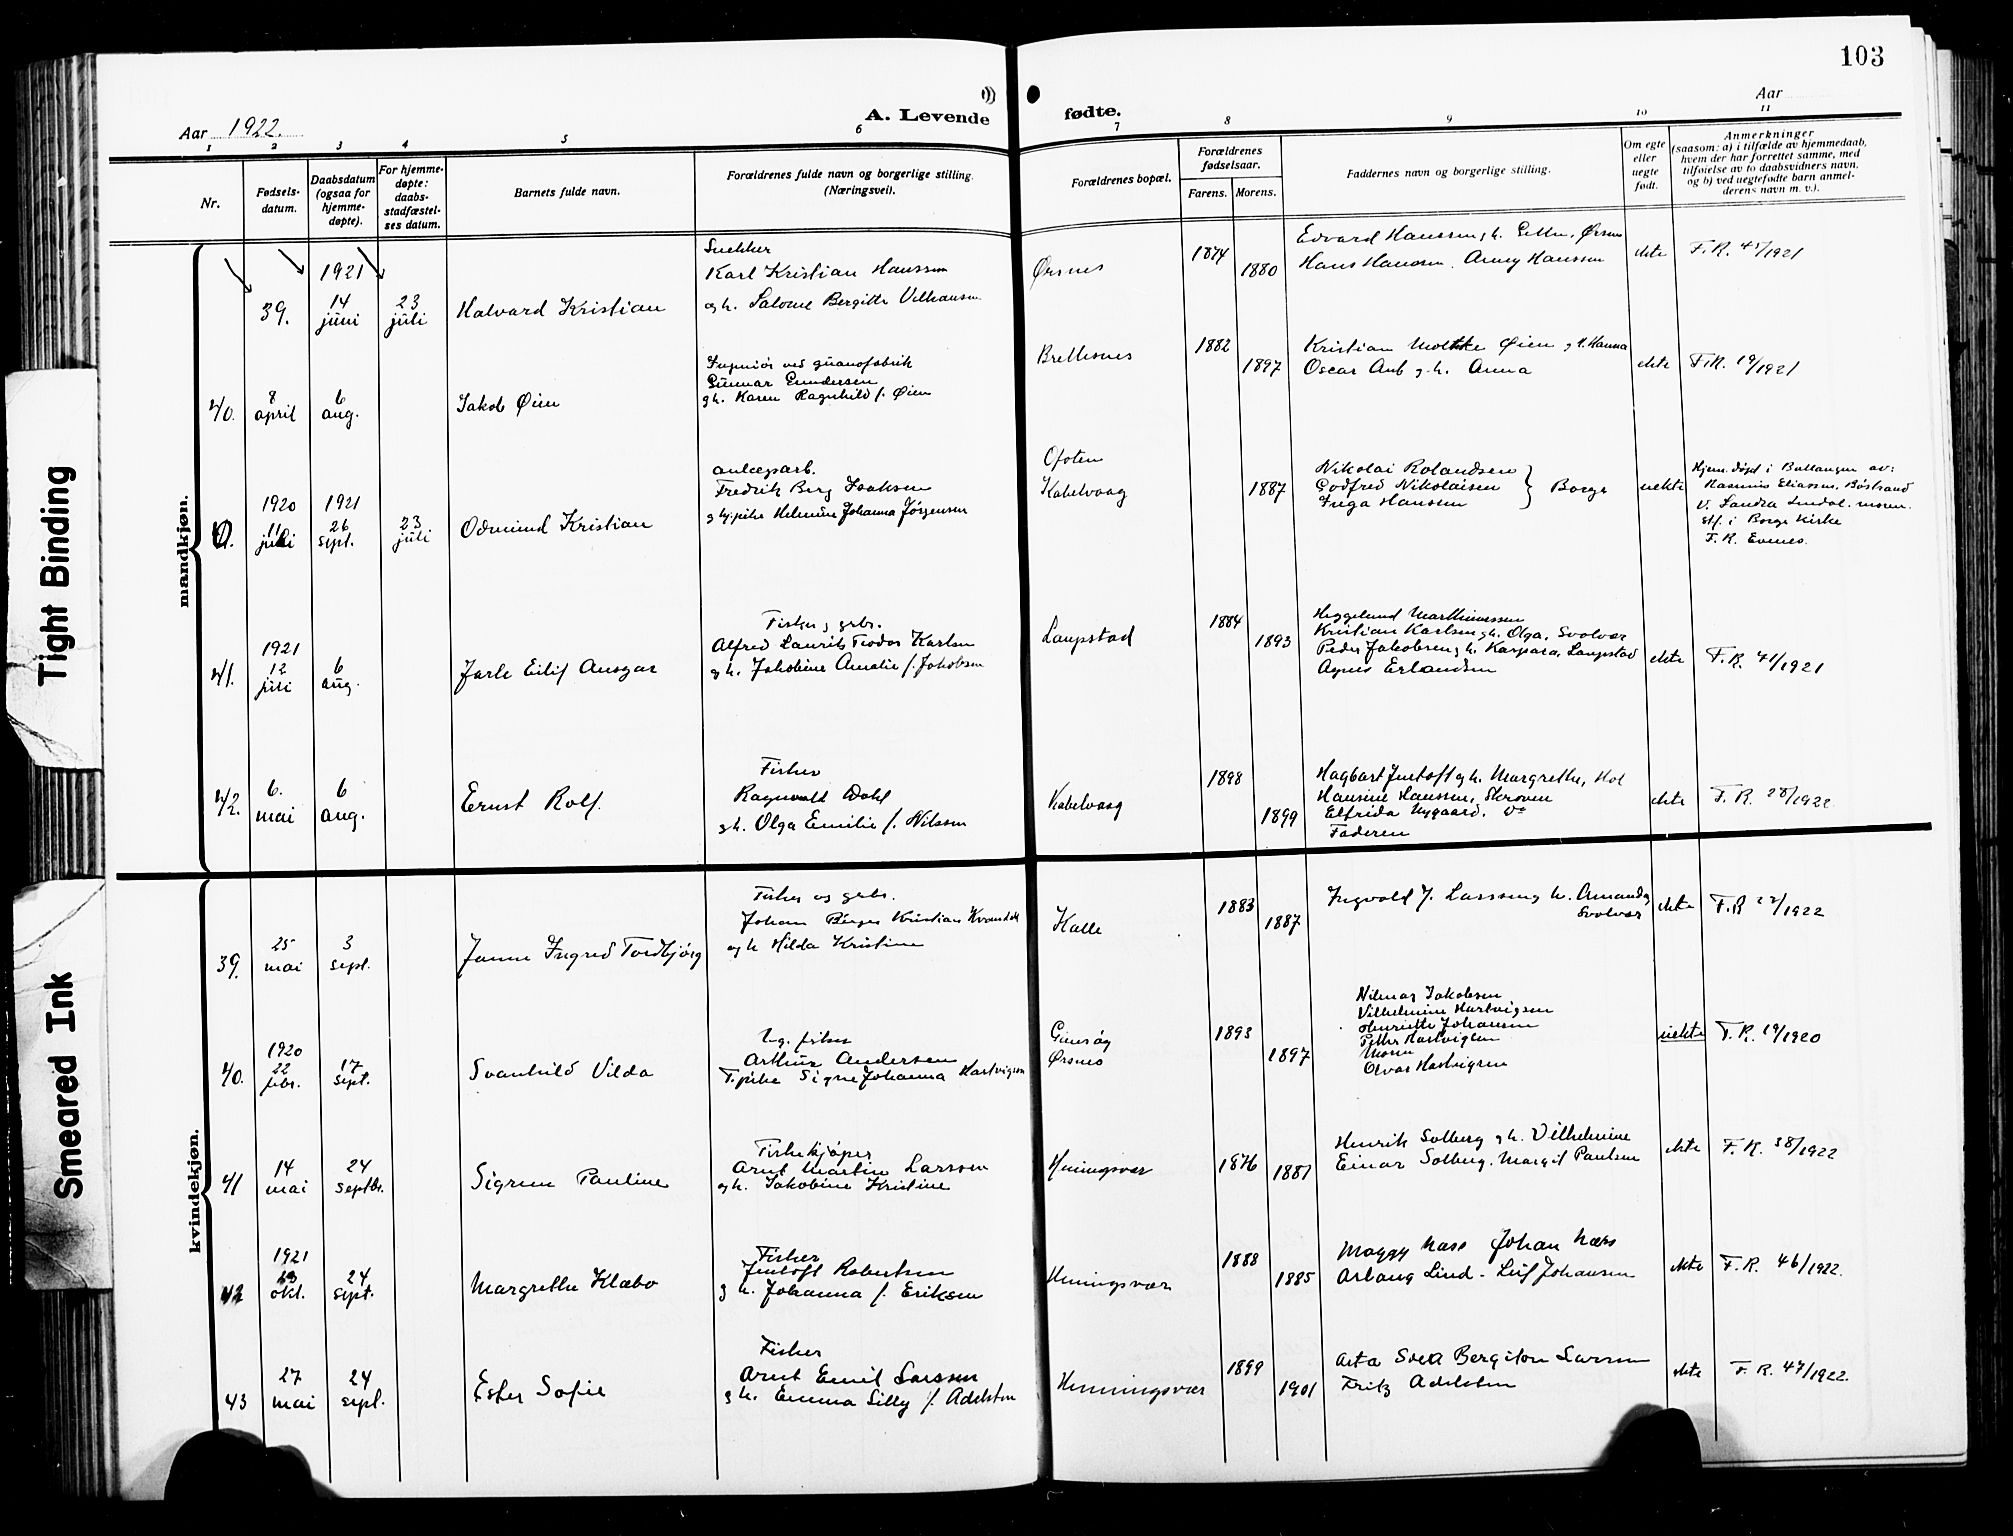 103
Aar 1922.
A. Levende fødte.
Aar
1 2 3 4 5 6 7 8 9 10 11
Nr.
Fødsels-
datum.
Daabsdatum
(ogsaa for
hjemme-
døpte).
For hjemme-
døpte:
daabs-
stadfæstel-
ses datum.
Barnets fulde navn.
Forældrenes fulde navn og borgerlige stilling.
(Næringsvei).
Forældrenes bopæl.
Forældrenes
fødselsaar.
Farens. Morens.
Faddernes navn og borgerlige stilling.
Om egte
eller
uegte
født.
Anmerkninger
(saasom: a) i tilfælde av hjemmedaab,
hvem der har forrettet samme, med
tilføielse av to daabsvidners navn,
og b) ved uegtefødte barn anmel-
derens navn m. v.).
mandkjøn.
39.
1921
14
juni
23
juli
Halvard Kristian
Snekker
Karl Kristian Hanssen
og h. Salome Bergitte
Ørsnes
1874
1880
Edvard Hanssen g h. Gitte, Ørsnes
Hans Hansen. Anny Hanssen
ekte
F. R. 45/1921
40.
8
april
6
aug.
Jakob Øien
Ingeniør ved guanofabrik
Gunnar Gundersen
g h. Karen Ragnhild f. Øien
Brettesnes
1882
1897
Kristian Øien g h. Hanna
Oscar Aub g h. Anna
ekte
F. R. 19/1921
1920
11
juli
1921
26
sept.
23
juli
Odmund Kristian
anlægsarb.
Fredrik Berg Isaksen
g tj.pike Helmine Johanna Jørgensen
Ofoten
Kabelvaag
1887
Nikolai Rolandsen
Godfred Nikolaisen } Borge
Inga Hansen
uekte
Hjem. døpt i Ballangen av:
Rasmus Eliassen, Bøstrand
v. Sandra Lindal. moren.
stf. i Borge Kirke
F. R. Evenes.
41.
1921
12
juli
6
aug.
Jarle Eilif Ansgar
Fisker g grbr.
Alfred Laurits Teodor Karlsen
g h. Jakobine Amalie f. Jakobsen
Laupstad
1884
1893
Heggelund Marthinussen
Kristian Karlsen g h. Olga, Svolvær
Peder Jakobsen g h. Kaspara, Laupstad
Agnes Erlandsen
ekte
F. R. 41/1921
42.
6.
mai
6
aug.
Ernst Rolf.
Fisker
Ragnvald Dahl
g h. Olga Emilie f. Nilssen
Kabelvaag
1898
1899
Hagbart Jentoft g h. Margrethe, Hol
Hansine Hanssen, Skroven
Elfrida Nygaard. do
Faderen
ekte
F. R. 28/1922
kvindekjøn.
39.
25
mai
3
sept.
Janna Ingrid Tordbjørg
Fisker og grbr.
Johan Birger Kristian
og h Hilda Kristine
Kalle
1883
1887
Ingvald J. Larssen g h. Amanda,
Svolvær
ekte
F. R 22/1922
40.
1920
22
febr.
17
sept.
Svanhild Vilda
Ug. fisker
Arthur Andersen
T. pike Signe Johanna Hartvigsen
Gimsøy
Ørsnes
1893
1897
Hilmar Jakobsen
Vilhelmine Hartvigsen
Henriette Johansen
Petter Hartvigsen
Moren
Olvar Hartvigsen
uekte
F. R. 19/1920
41
14
mai
24
septbr.
Sigrun Pauline
Fiskekjøper
Arnt Martin Larssen
g h. Jakobine Kristine
Henningsvær
1876
1881
Henrik Solberg g h. Vilhelmine
Einar Solberg. Margit Paulsen
ekte
F. R. 38/1922
42
1921
okt.
24
sept.
Margrethe Klæbo
Fisker
Jentoft Robertsen
g h. Johanna f. Eriksen
Henningsvær
1888
1885
Maggy Næss Johan Næss
Aslaug Lind - Leif Johansen
ekte
F. R. 46/1922.
43
27
mai
24
sept.
Ester Sofie
Fisker
Arnt Emil Larssen
g h. Emma Silly f. Adelsten
Henningsvær
1899
1901
Asta Svea Bergiton Larssen
Fritz Adelsten
ekte
F. R. 47/1922.
Tight Binding
Smeared Ink